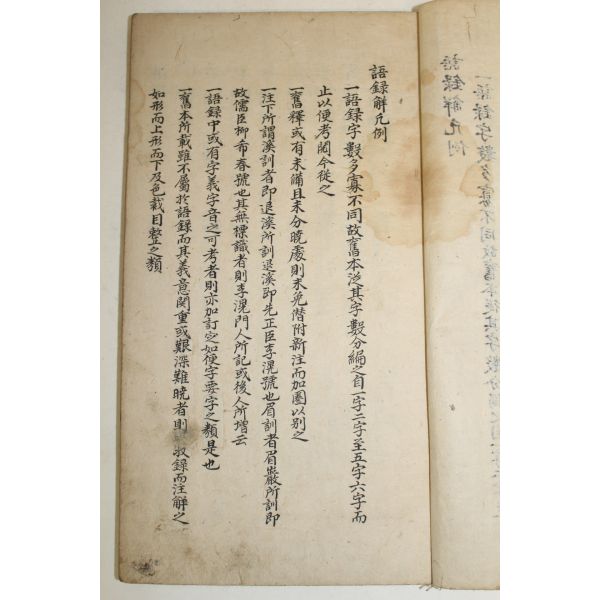 語録解凡例
一語録字數多寡不同故舊本從其字數分編之自一字二字至五字六字而
止以便考閱今從之
一舊釋或有未備且未分曉處則未免階附新注而加圈以別之
一注下所謂溪訓者即退溪所訓退溪即先正臣李滉號也眉訓者眉巖所訓即
故儒臣柳希春號也其無標識者則李滉門人所記或後人所增云
一語録中或有字義字音之可考者則亦加訂定如便字要字之類是也
一舊本所載雖不屬於語録而其義意関重或艱深難曉者則収録而注解之
如形而上形而下及色裁目整之類